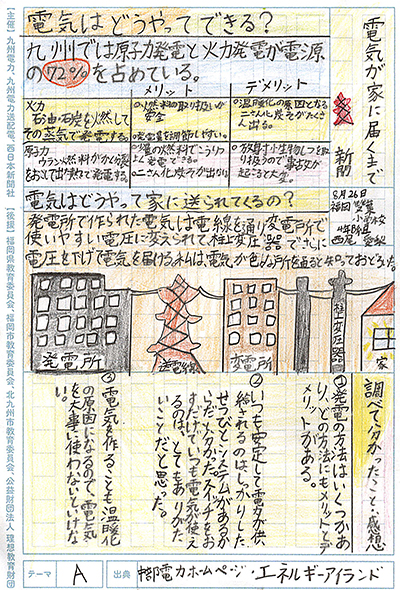 電気が家に届くまで
新聞
8月26日
電気はどうやってできる？
九州では原子力発電と火力発電が電源
の72%を占めている。
メリット
デメリット
火力
石油・石炭を燃して
その蒸気で発電する。
燃料の取り扱いが
安全
発電量を調節しやすい。
温暖化の原因となる
二さん化炭そがたくさ
ん出る。
原子力
少量の燃料でこうりつ
よく発電できる。
二さん化炭そが出ない
電気はどうやって家に送られてくるの？
発電所で作られた電気は電線を通り変電所で
使いやすい電圧に変えられて柱上変圧器でさらに
電圧を下げて電気を届ける。私は、電気が色んな所を通ると知っておどろいた。
発電所
送電線
変電所
柱上変圧器
家
調べて分かったこと・感想
①発電の方法はいくつかあ
り、どの方法にもメリットとデ
メリットがある。
②いつも安定して電力が供
給されるのはしっかりした
せつびとシステムがあるか
らだと分かった。スイチをお
すだけでいつでも電気が使え
るのは、とてもありがた
いことだと思った。
③電気を作ることも温暖化
の原因になるので、電気
を大事に使わないといけな
い。
テーマ
A
出典
中部電力ホームページ・エネルギーアイランド
【主催】九州電力、九州電力送配電、西日本新聞社
【後援】福岡県教育委員会、福岡市教育委員会、北九州市教育委員会、公益財団法人 理想教育財団